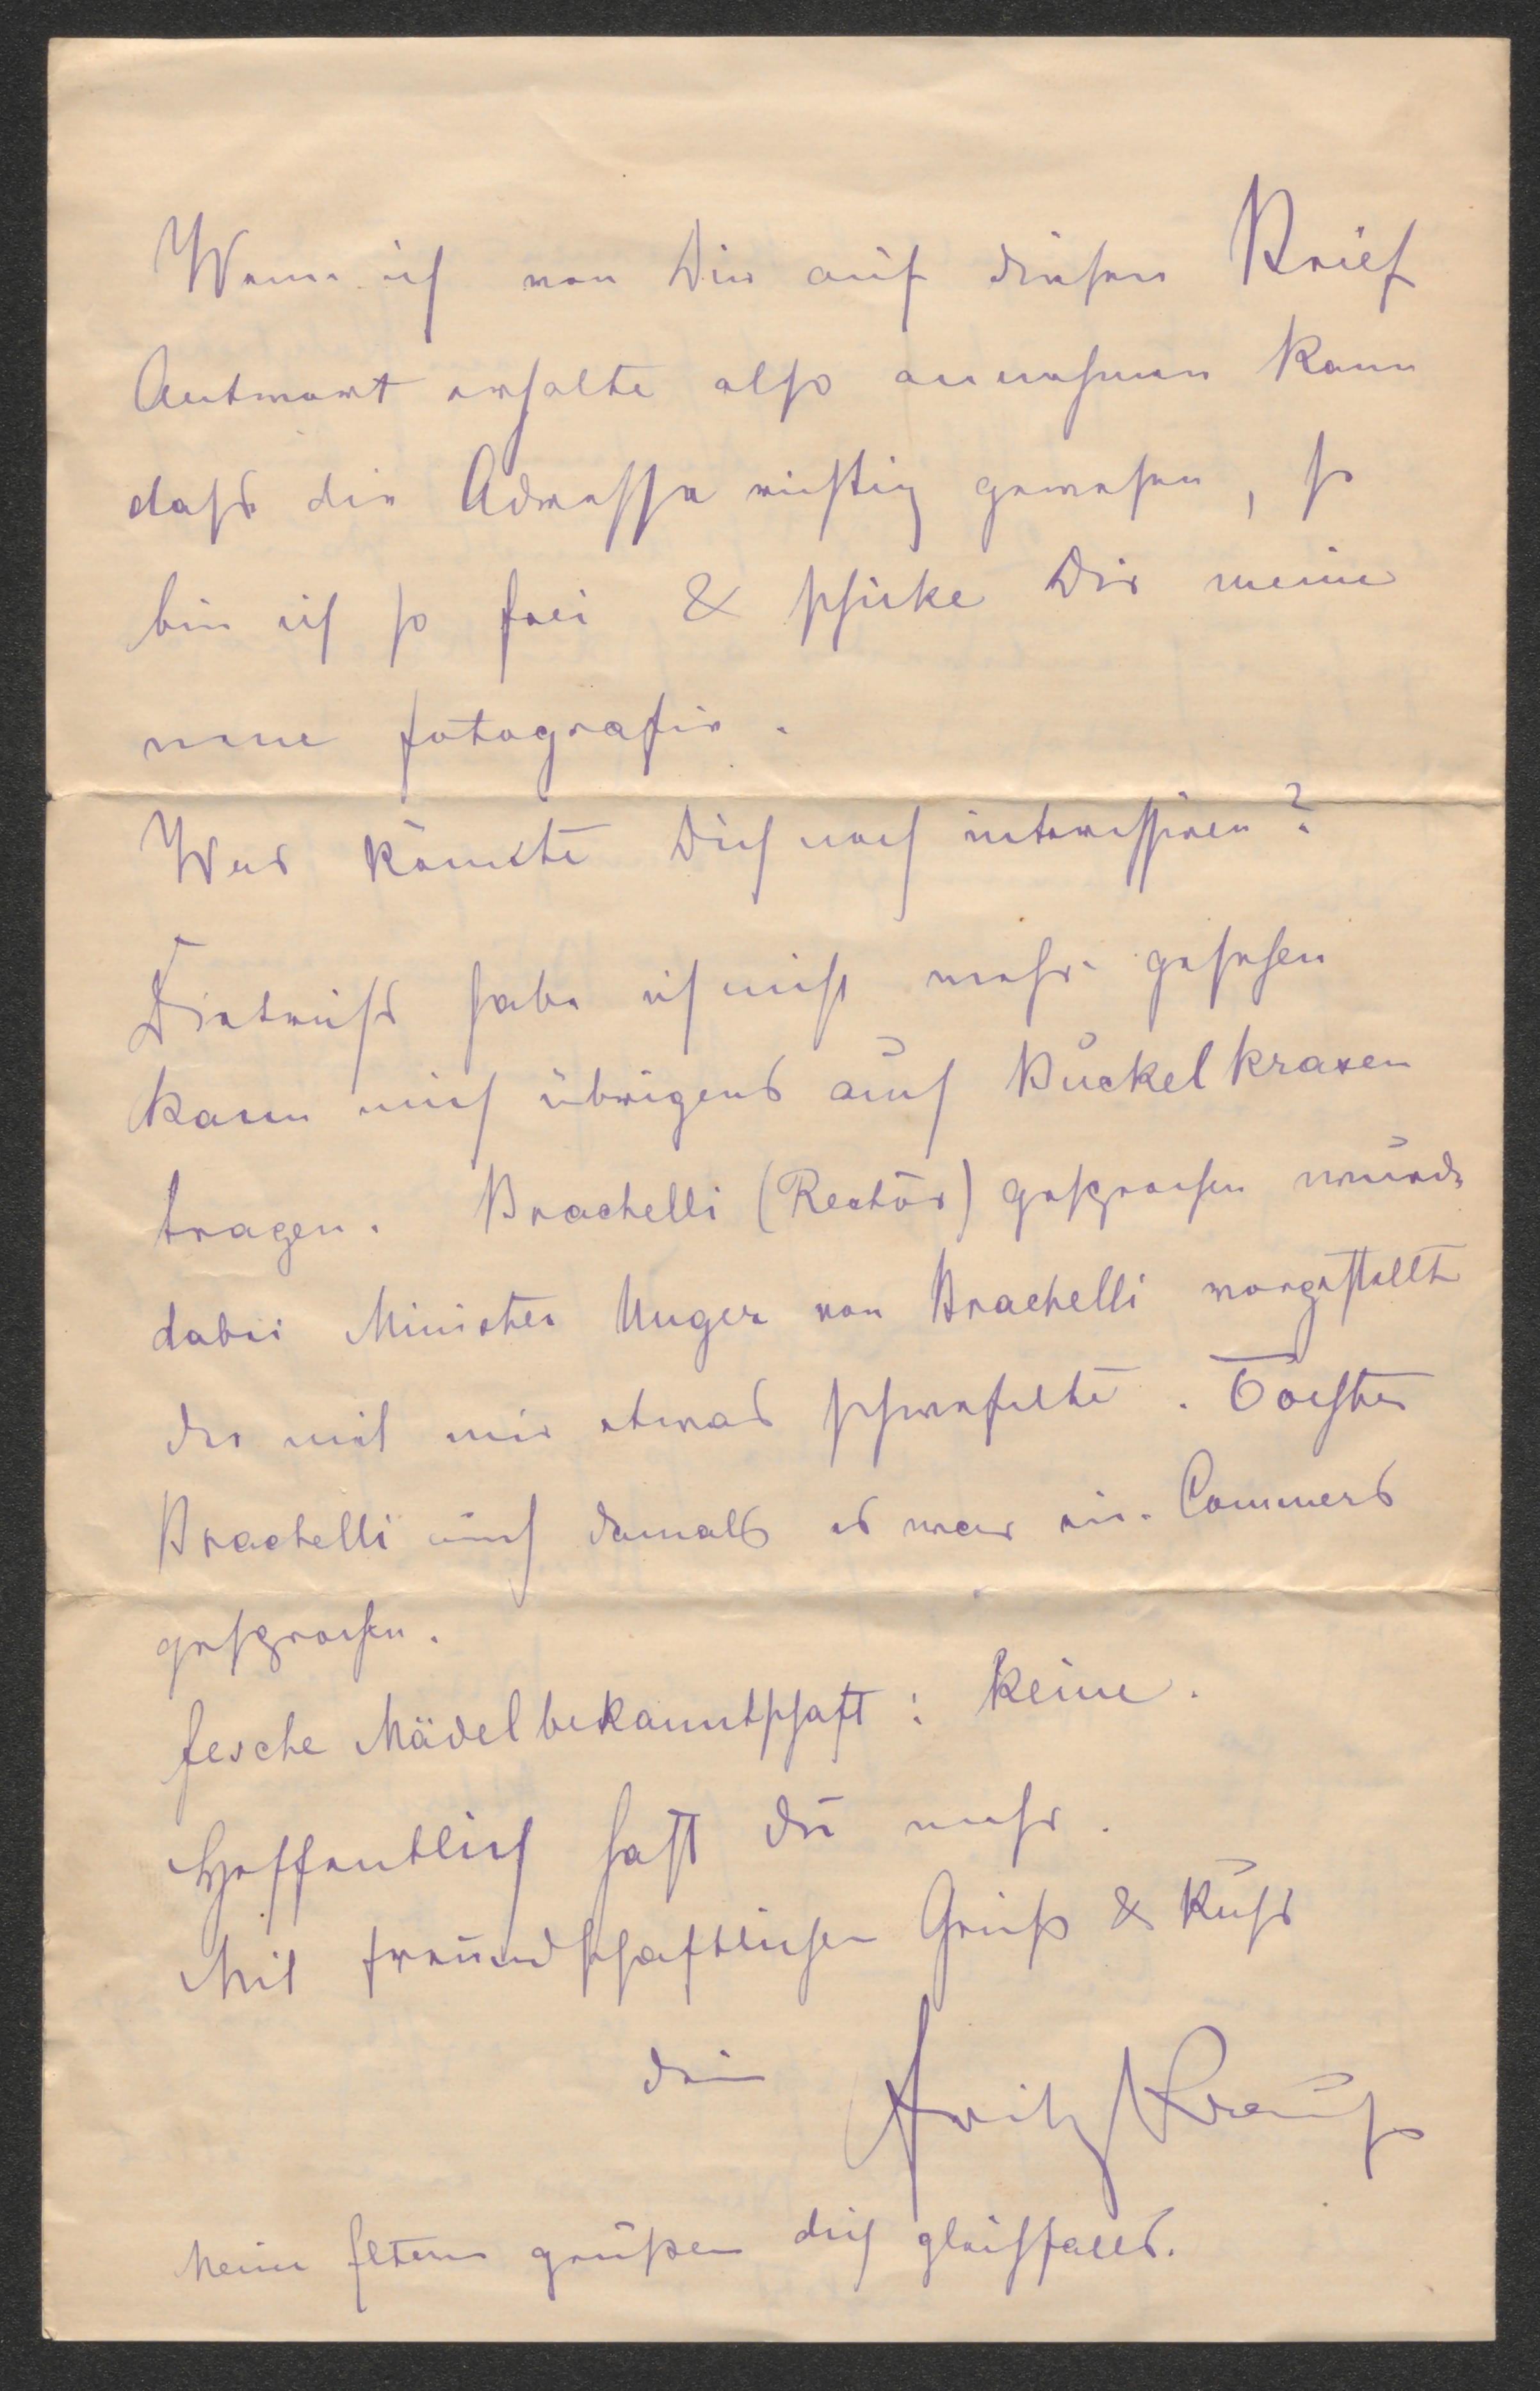 Wenn ich von Dir auf diesen Brief
Antwort erhalte also annehmen kann
dass die Adresse richtig gewesen, so
bin ich so frei & schicke Dir meine
neue Fotografie.
Was könnte Dich noch interessiren?
Dietrichs habe ich nicht mehr gesehen
kann mich übrigens auch Buckelkraxen
tragen. Brachelli (Rector) gesprochen wurde
dabei Minister Unger von Brachelli vorgestellt
der mit mir etwas schwefelte. Tochter
Brachelli auch damals es war ein Commers
gesprochen.
Fesche Mädelbekanntschaft: keine.
Hoffentlich hast Du mehr.
Mit freundschaftlichen Gruß & Kuss
Dein Fritz Krauß
Meine Eltern grüßen dich gleichfalls.